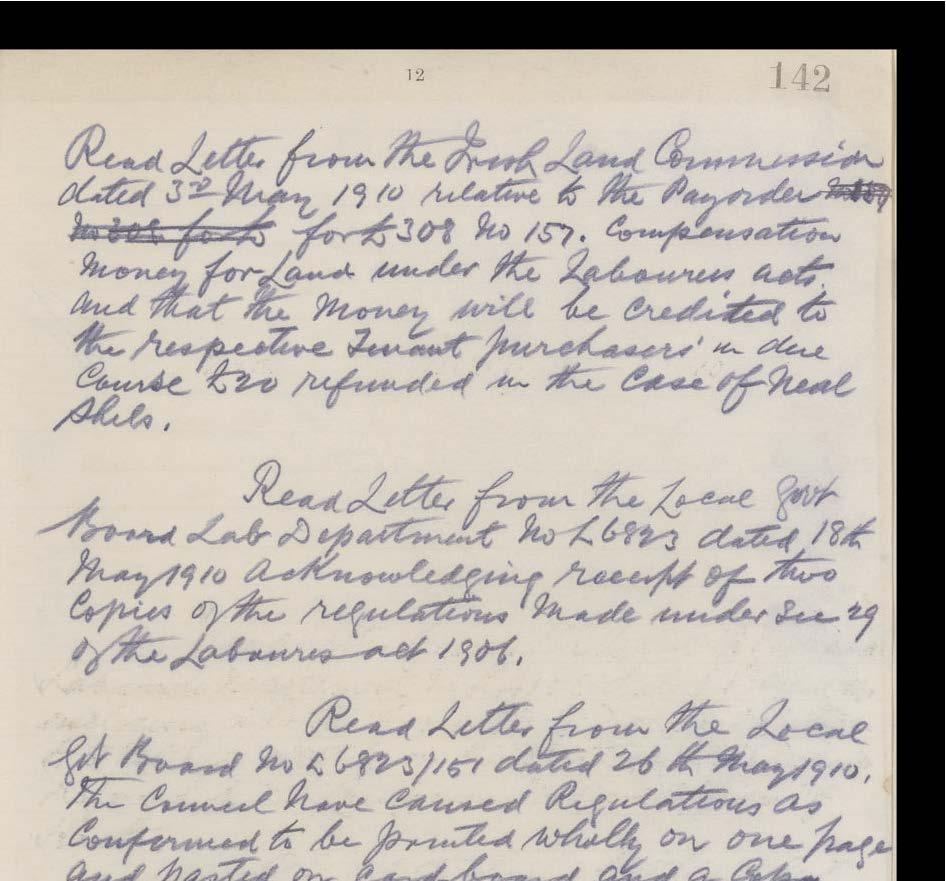 12
142
Read Letter from the Irish Land Commission
dated 3rd May 1910 relative to the Payorder
for £308 No 157. Compensation
Money for Land under the Labourers acts.
and that the Money will be credited to
the respective Tenant purchasers' in due
Course £20 refunded in the Case of Neal
Shels.
Read Letter from the Local Govt
Board Lab Department No L6823 dated 18th
May 1910 Acknowledging receipt of two
Copies of the regulations Made under Sec 29
of the Laboures act 1906.
Read Letter from the Local
Gvt Board No L6823/151 dated 26th May 1910.
The Council have caused Regulations as
Confirmed to be printed wholly on one page
and pasted on Cardboard and a Copy